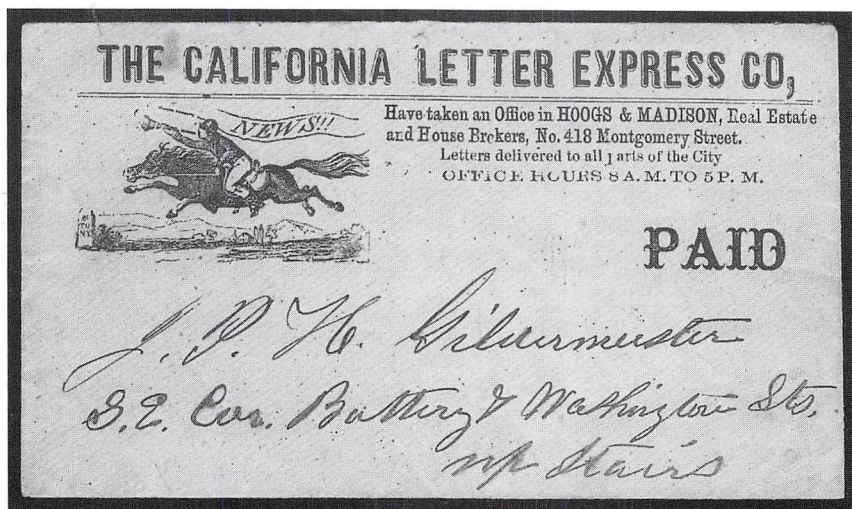 THE CALIFORNIA LETTER EXPRESS CO,
NEWS!!!
Have taken an Office in HOOGS & MADISON, Real Estate
and House Brokers, No. 418 Montgomery Street.
Letters delivered to all parts of the City
OFFICE HOURS 8 A. M. TO 5 P. M.
PAID
J. P. H. Gildermeister
S.E. Cor. Battery & Washington Sts.
up Stairs